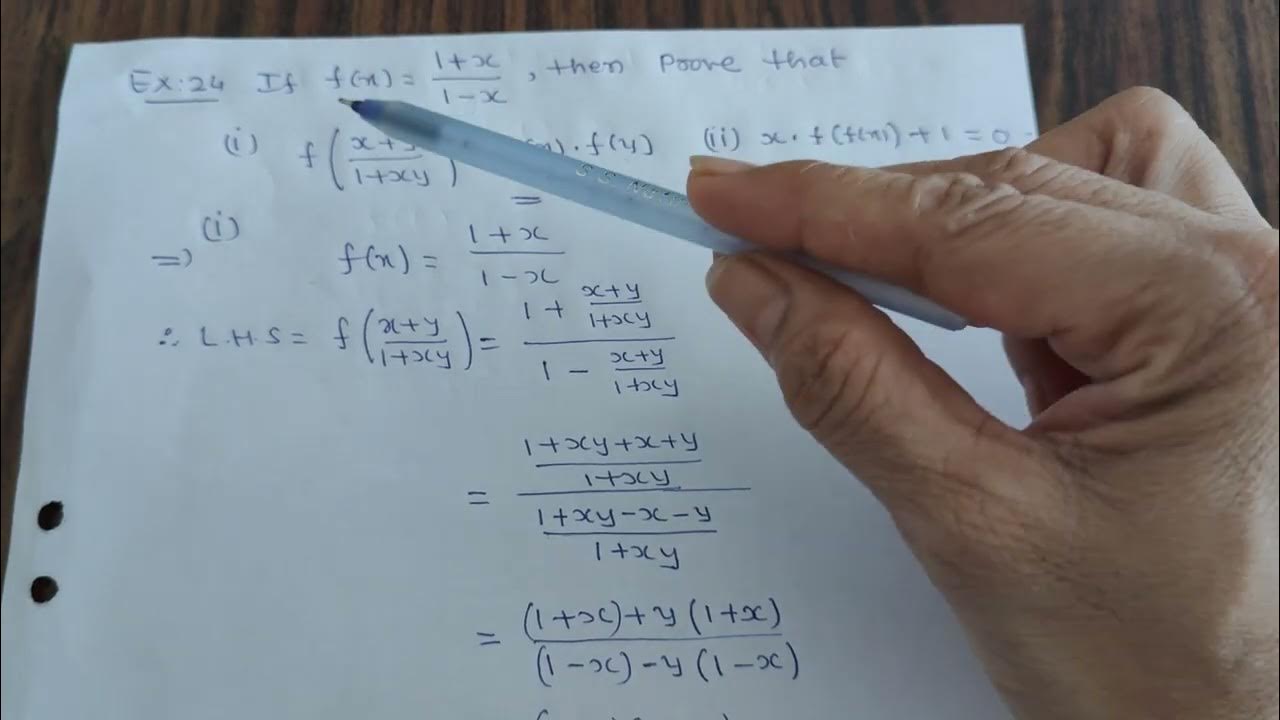 Ex:24 If f(x) = (1+x)/(1-x), then prove that
(i) f((x+ /(1+xy)) ). f(y) (ii) x. f(f(x)) + 1 = 0
=
(i)
=> f(x) = (1+x)/(1-x)
∴ L.H.S = f((x+y)/(1+xy)) = (1 + (x+y)/(1+xy))/(1 - (x+y)/(1+xy))
= ((1+xy+x+y)/(1+xy))/((1+xy-x-y)/(1+xy))
= ((1+x)+y(1+x))/((1-x)-y(1-x))